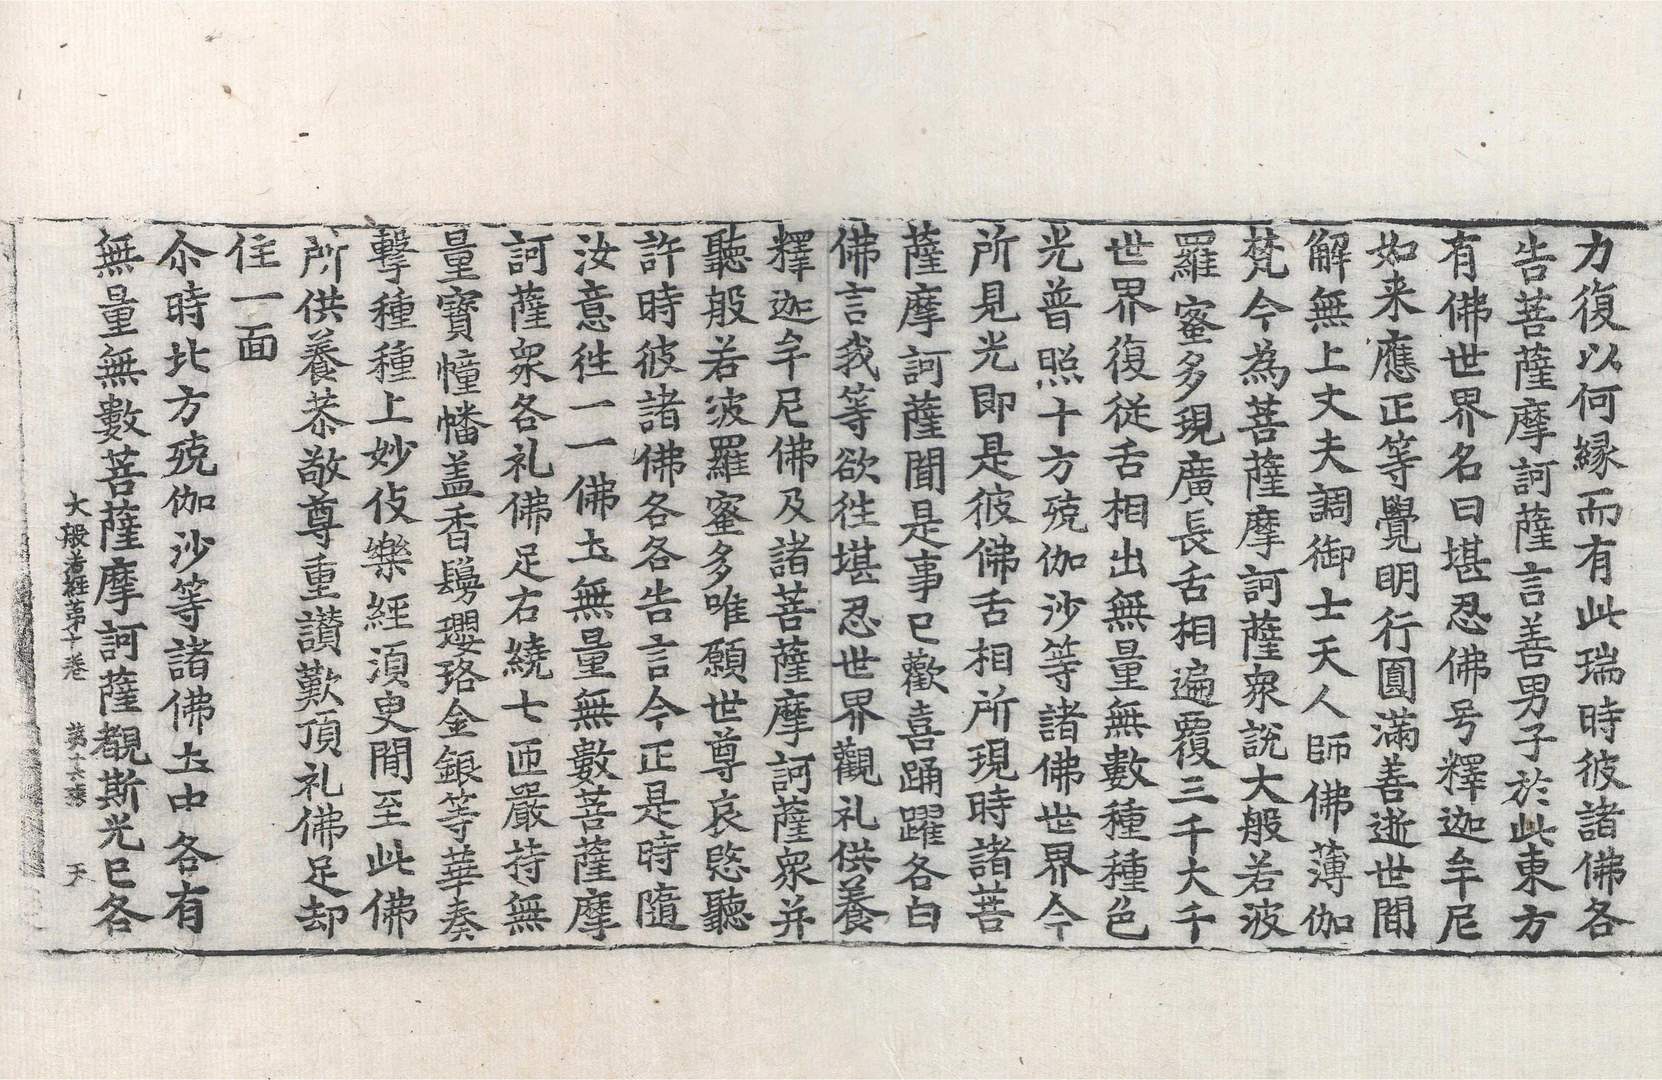 力復以何縁而有此瑞時彼諸佛各
告菩薩摩訶薩言善男子於此東方
有佛世界名曰堪忍佛号釋迦牟尼
如来應正等覺明行圓滿善逝世間
解無上丈夫調御士天人師佛薄伽
梵今為菩薩摩訶薩衆說大般若波
羅蜜多現廣長舌相遍覆三千大千
世界復從舌相出無量無數種種色
光普照十方殑伽沙等諸佛世界今
所見光即是彼佛舌相所現時諸菩
薩摩訶薩聞是事已歡喜踊躍各白
佛言我等欲往堪忍世界觀礼供養
釋迦牟尼佛及諸菩薩摩訶薩衆并
聽般若波羅蜜多唯願世尊哀愍聽
許時彼諸佛各各告言今正是時隨
汝意往一一佛圡無量無數菩薩摩
訶薩衆各礼佛足右繞七匝嚴持無
量寶幢幡盖香鬘瓔珞金銀等華奏
擊種種上妙伎樂經須臾間至此佛
所供養恭敬尊重讃歎頂礼佛足却
住一面
尒時北方殑伽沙等諸佛圡中各有
無量無數菩薩摩訶薩覩斯光已各
大般若經第十卷 第十六張 天